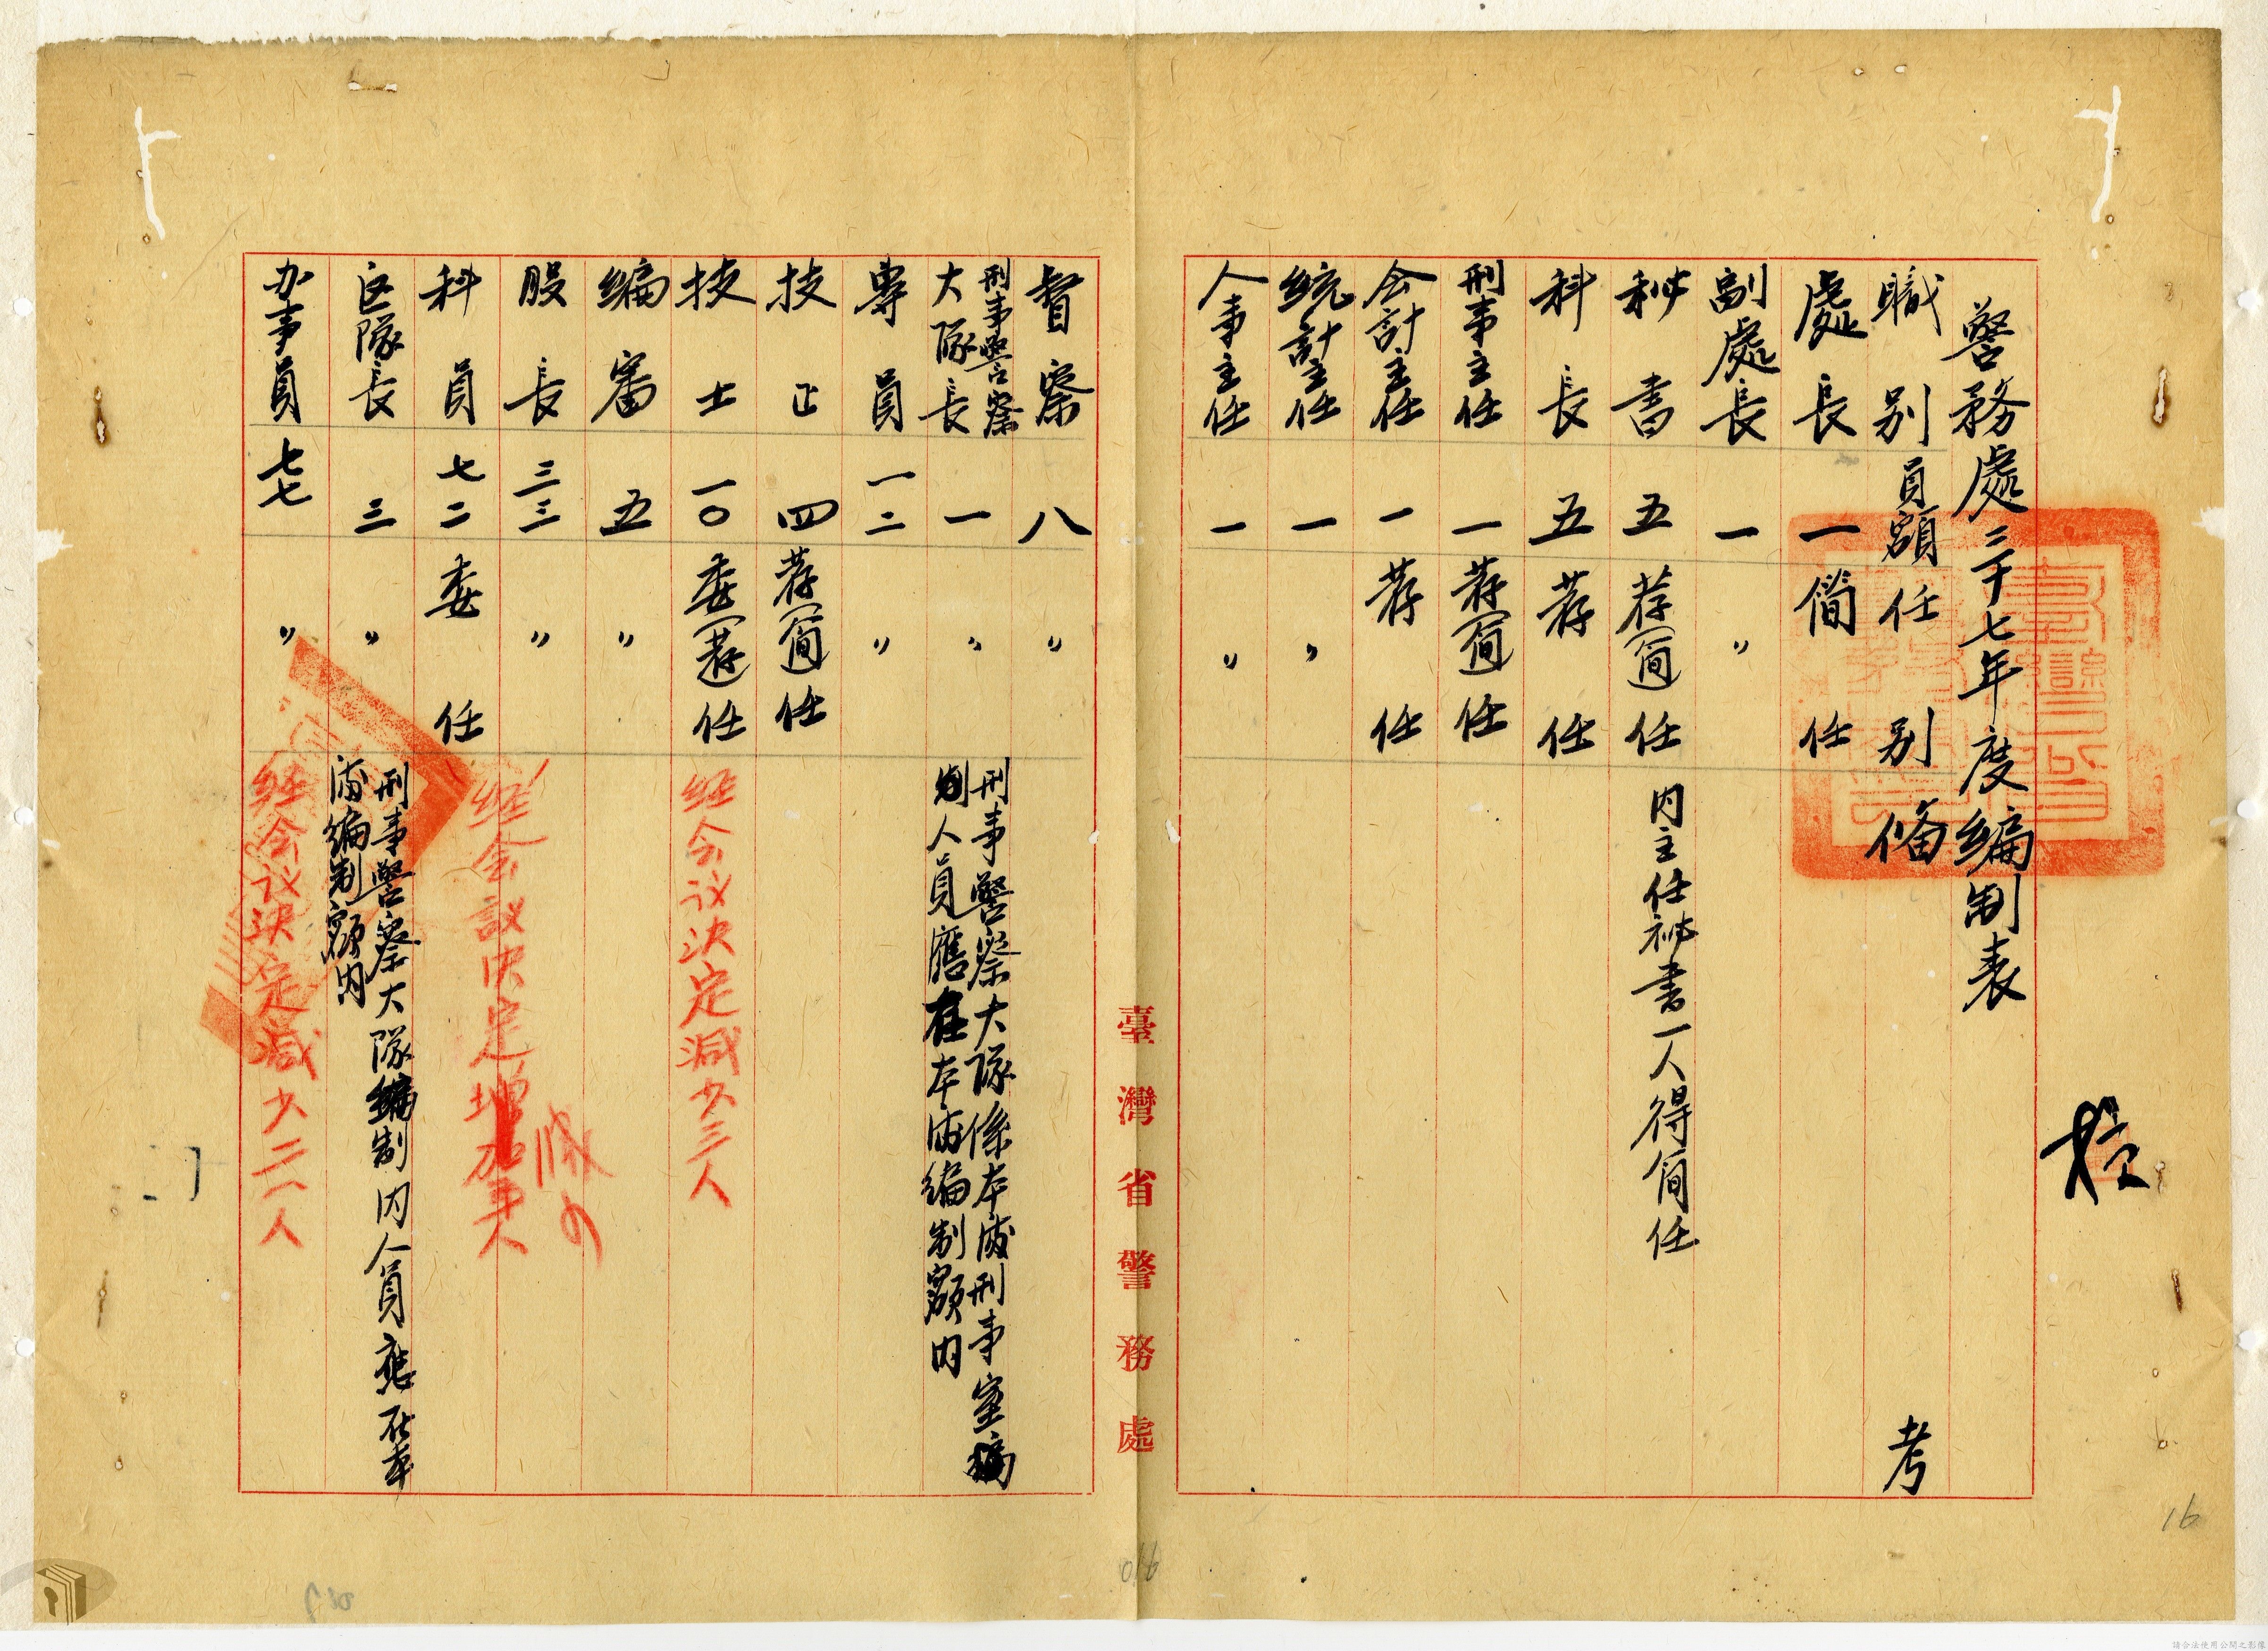 警務處三十七年度編制表
職別 員額 任別 備考
處長 一 簡任
副處長 一 〃
秘書 五 荐(簡)任 內主任秘書一人得簡任
科長 五 荐任
刑事主任 一 荐(簡)任
会計主任 一 荐任
統計主任 一 〃
人事主任 一 〃
臺灣省警務處
督察 八 〃
刑事警察大隊長 一 〃 刑事警察大隊係本處刑事室編制人員應在本處編制額内
專員 一二 〃
技正 四 荐(簡)任
技士 一〇 委(荐)任 経会议决定減少三人
編審 五 〃
股長 三三 〃
減少
経会議决定增加
科員 七二 委任
区隊長 三 〃 刑事警察大隊編制内人員應在本處編制額内
办事員 七七 〃 経会议决定減少二人
16
016
請合法使用公開之影像